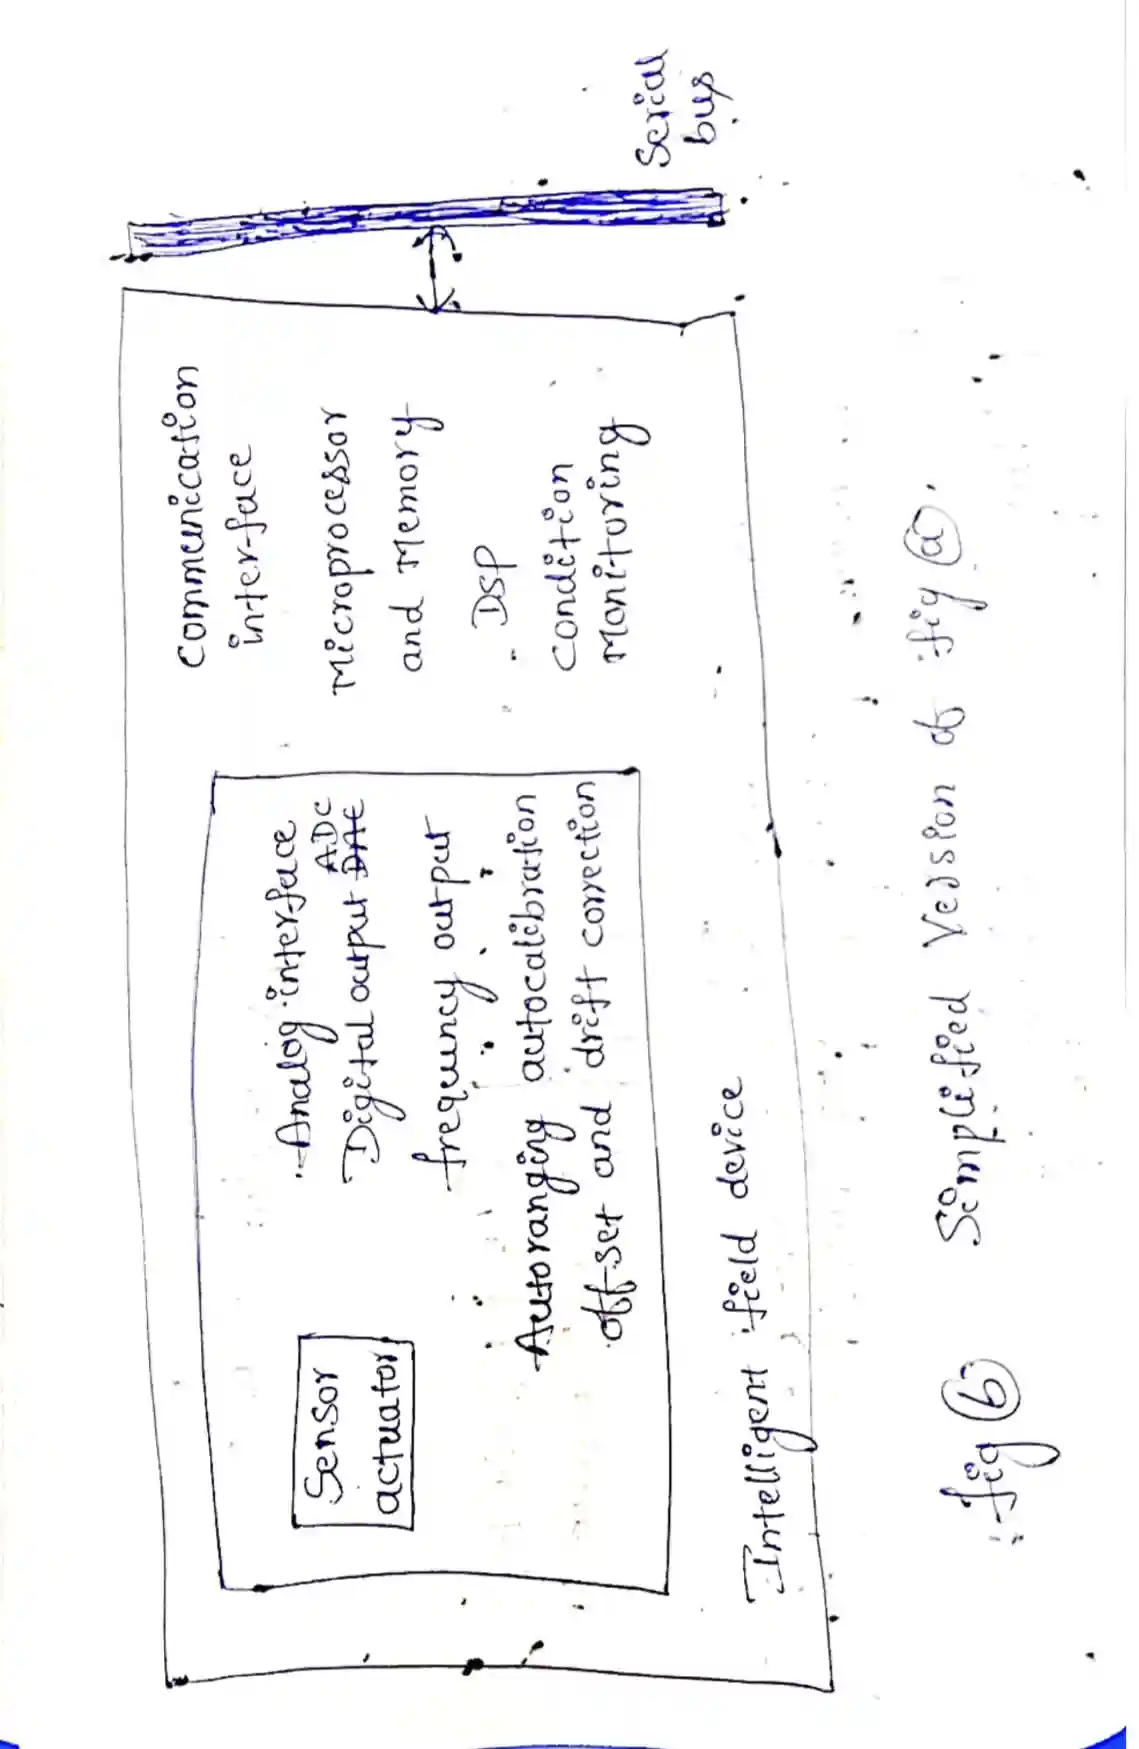 Sensor
actuator
Analog interface
ADC
Digital output DAC
frequency output
Autoranging autocalibration
off-set and drift correction
Communication
interface
Microprocessor
and Memory
DSP
Condition
Monitoring
Intelligent field device
Serial
bus
fig (b) Simplified Version of fig (a).